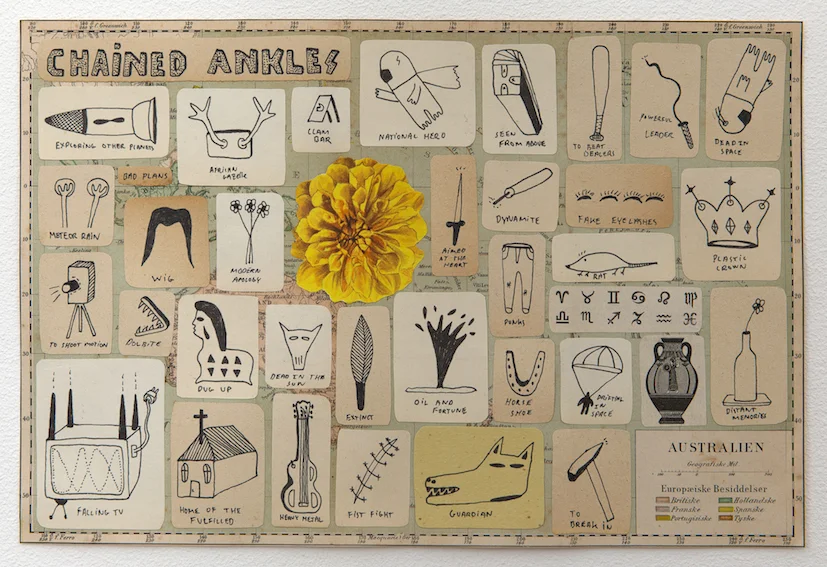 CHAINED ANKLES
EXPLORING OTHER PLANETS
AFRICAN
LABOR
CLAM
BAR
NATIONAL HERO
SEEN
FROM ABOVE
TO BEAT
DEALERS
POWERFUL
LEADER
DEAD IN
SPACE
METEOR RAIN
BAD PLANS
WIG
MODERN
APOLOGY
AIMED
AT THE
HEART
DYNAMITE
FAKE EYELASHES
PLASTIC
CROWN
TO SHOOT MOTION
DOGBITE
DUG UP
DEAD IN THE
SUN
EXTINCT
OIL AND
FORTUNE
PONGS
RAT
♈ ♉ ♊ ♋ ♌ ♍
♎ ♏ ♐ ♑ ♒ ♓
HORSE
SHOE
IN
SPACE
DISTANT
MEMORIES
FALLING TV
HOME OF THE
FULFILLED
HEAVY METAL
FIST FIGHT
GUARDIAN
TO
BREAK IN
AUSTRALIEN
Geografiske Mil
Europæiske Besiddelser
Britiske
Hollandske
Franske
Spanske
Portugisiske
Tyske